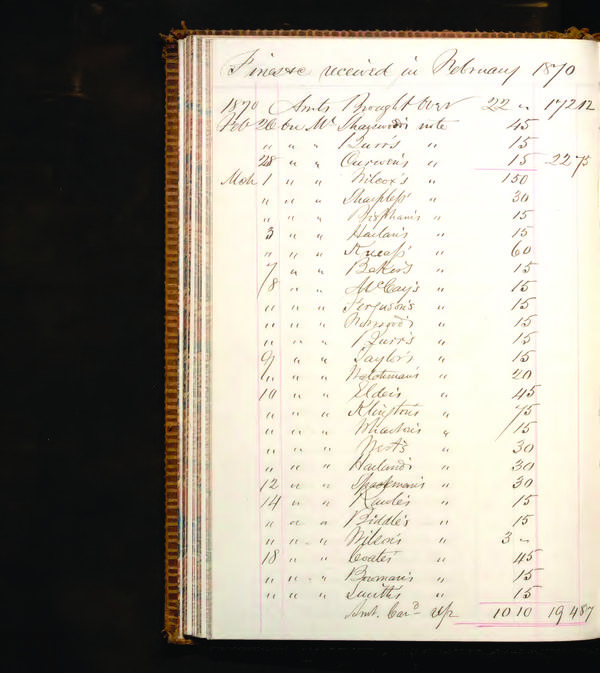 Fines &c received in February 1870
1870 Amts Brought Over 22 " 172 12
Feb 26 on Mr Shaywood's note 45
" " " Burr's " 15
28 " " Curwen's " 15 22 75
Mch 1 " " Wilcox's " 1 50
" " " Sharpless' " 30
" " " Bispham's " 15
3 " " Harlan's " 15
" " " Kneass' " 60
7 " " Baker's " 15
8 " " McCay's " 15
" " " Ferguson's " 15
" " " " 15
" " " Burr's " 15
9 " " Taylor's " 15
" " " " 20
10 " " Elder's " 45
" " " " 75
" " " Wharton's " 15
" " " West's " 30
" " " Harland's " 30
12 " " Spackman's " 30
14 " " Rawle's " 15
" " " Biddle's " 15
" " " Wilson's " 3 "
18 " " Coates' " 45
" " " Bowman's " 15
" " " Smith's " 15
Amt. Card Up 10 10 194 87